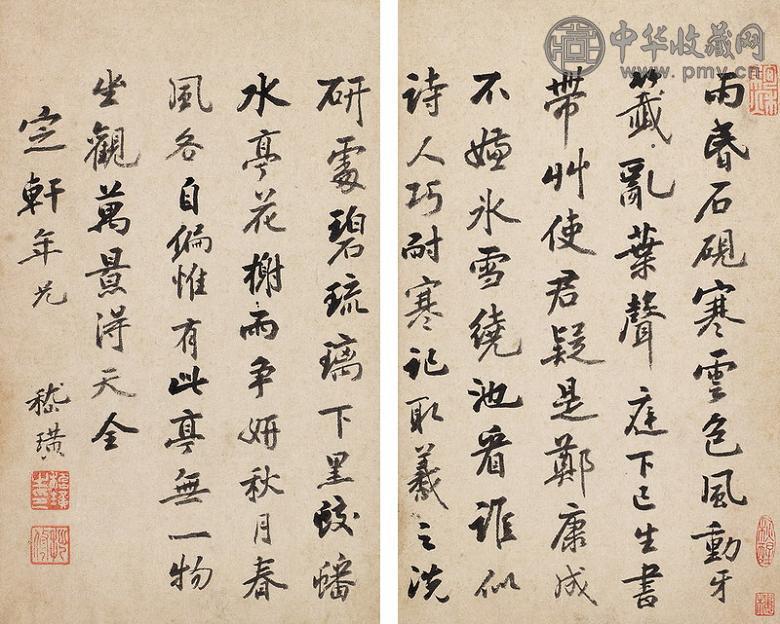 中华收藏网
www.pmyv.cn
雨昏石硯寒雲色風動牙
籤亂葉聲庭下已生書
帶艸使君疑是鄭康成
不嫌氷雪繞池看誰似
詩人巧耐寒記取羲之洗
研處碧琉璃下黑蛟蟠
水亭花榭兩爭妍秋月春
風各自偏惟有此亭無一物
坐觀萬景得天全
定軒年兄
嵇璜